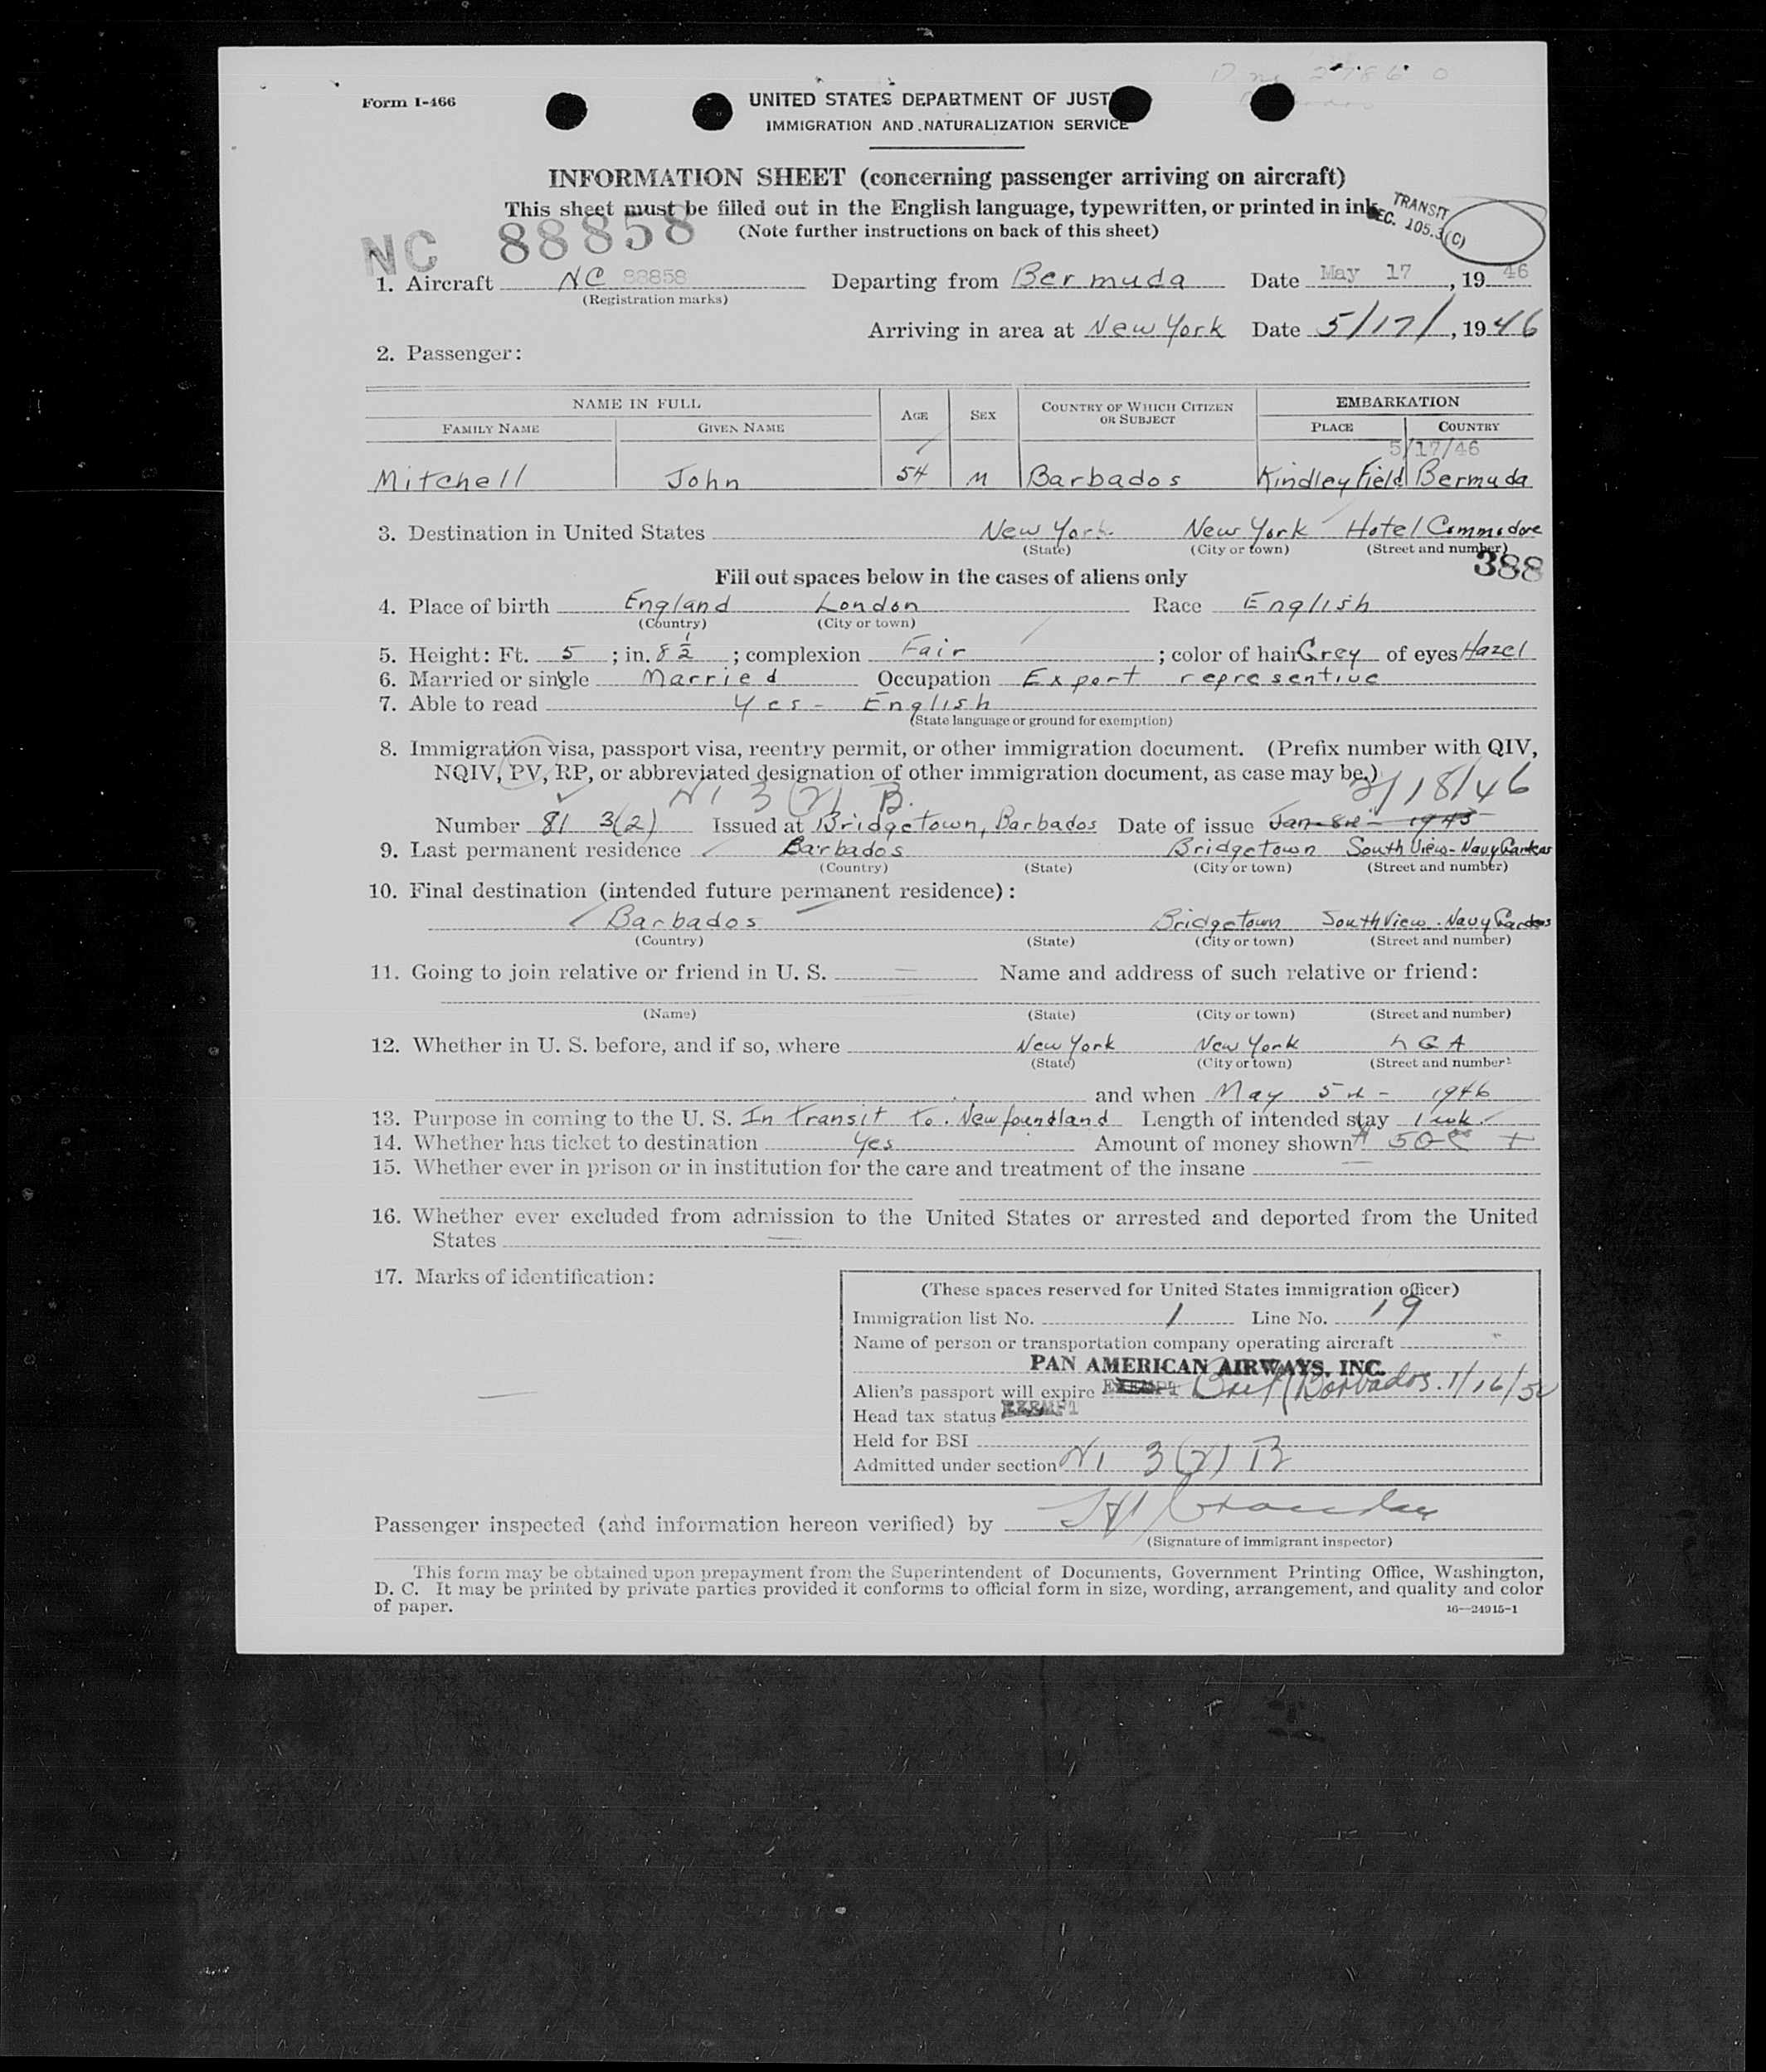 Form I-466
UNITED STATES DEPARTMENT OF JUST
IMMIGRATION AND NATURALIZATION SERVICE
INFORMATION SHEET (concerning passenger arriving on aircraft)
This sheet must be filled out in the English language, typewritten, or printed in ink.
TRANSIT
SEC. 105.3(C)
(Note further instructions on back of this sheet)
NC 88858
1. Aircraft NC 88858 Departing from Bermuda Date May 17, 1946
(Registration marks)
Arriving in area at New York Date 5/17/, 1946
2. Passenger:
NAME IN FULL AGE SEX COUNTRY OF WHICH CITIZEN OR SUBJECT EMBARKATION
FAMILY NAME GIVEN NAME PLACE COUNTRY
5/17/46
Mitchell John 54 M Barbados Kindley Field Bermuda
3. Destination in United States New York New York Hotel Commodore
(State) (City or town) (Street and number)
388
Fill out spaces below in the cases of aliens only
4. Place of birth England London Race English
(Country) (City or town)
5. Height: Ft. 5 ; in. 8 1/2 ; complexion Fair ; color of hair Grey of eyes Hazel
6. Married or single Married Occupation Export representive
7. Able to read Yes - English
(State language or ground for exemption)
8. Immigration visa, passport visa, reentry permit, or other immigration document. (Prefix number with QIV,
NQIV, PV, RP, or abbreviated designation of other immigration document, as case may be.)
NI 3(2) B. 2/18/46
Number 81 3(2) Issued at Bridgetown, Barbados Date of issue Jan 8th - 1945
9. Last permanent residence Barbados Bridgetown South View - Navy Gardens
(Country) (State) (City or town) (Street and number)
10. Final destination (intended future permanent residence):
Barbados Bridgetown South View. Navy Gardens
(Country) (State) (City or town) (Street and number)
11. Going to join relative or friend in U. S. — Name and address of such relative or friend:
(Name) (State) (City or town) (Street and number)
12. Whether in U. S. before, and if so, where New York New York LGA
(State) (City or town) (Street and number)
and when May 5th - 1946
13. Purpose in coming to the U. S. In transit to Newfoundland Length of intended stay 1 wk.
14. Whether has ticket to destination Yes Amount of money shown 50
15. Whether ever in prison or in institution for the care and treatment of the insane —
16. Whether ever excluded from admission to the United States or arrested and deported from the United
States —
17. Marks of identification:
—
(These spaces reserved for United States immigration officer)
Immigration list No. 1 Line No. 19
Name of person or transportation company operating aircraft
PAN AMERICAN AIRWAYS, INC.
Alien's passport will expire EXEMPT Brit/Barbados. 1/16/50
Head tax status EXEMPT
Held for BSI
Admitted under section NI 3(2) B
Passenger inspected (and information hereon verified) by
(Signature of immigrant inspector)
This form may be obtained upon prepayment from the Superintendent of Documents, Government Printing Office, Washington,
D. C. It may be printed by private parties provided it conforms to official form in size, wording, arrangement, and quality and color
of paper.
16—24915-1